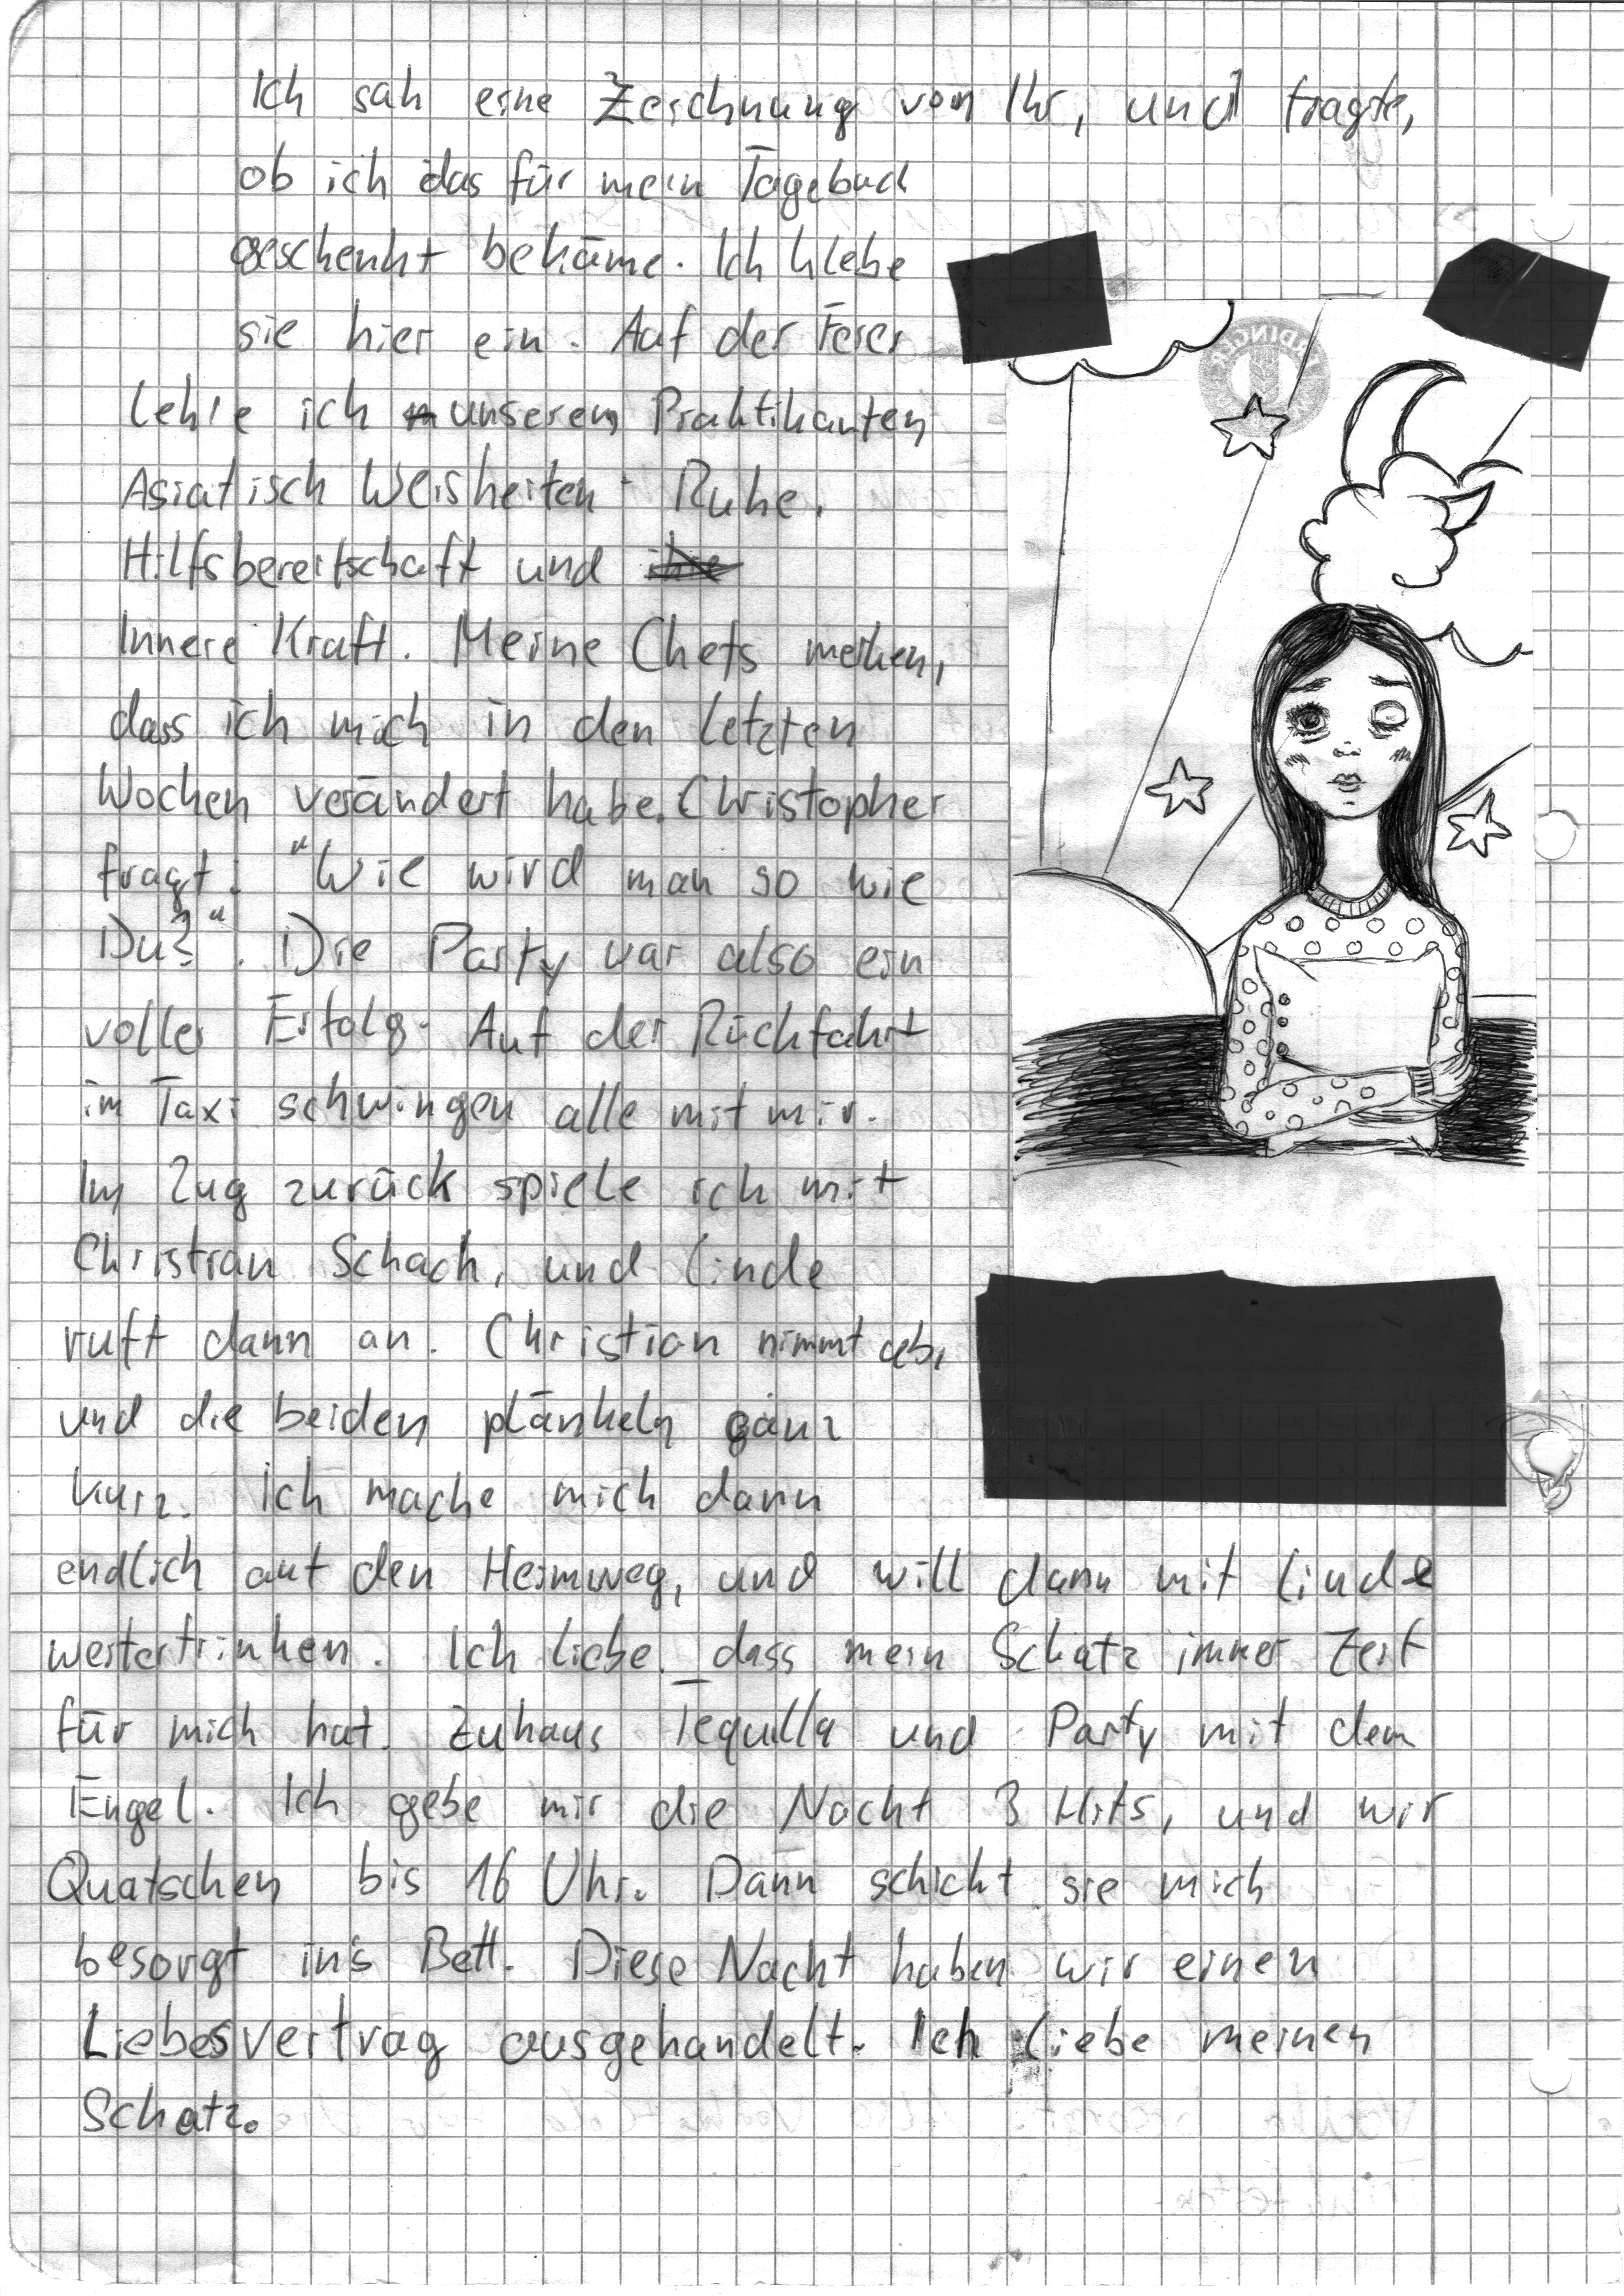 Ich sah eine Zeichnung von Ihr, und fragte,
ob ich das für mein Tagebuch
geschenkt bekäme. Ich klebe
sie hier ein. Auf der Feier
Lehre ich unserem Praktikanten
Asiatisch Weisheiten - Ruhe,
Hilfsbereitschaft und
Innere Kraft. Meine Chefs merken,
dass ich mich in den letzten
Wochen verändert habe. Christopher
fragt: "Wie wird man so wie
Du?". Die Party war also ein
voller Erfolg. Auf der Rückfahrt
im Taxi schwingen alle mit mir.
Im Zug zurück spiele ich mit
Christian Schach, und Linde
ruft dann an. Christian nimmt ab,
und die beiden plänkeln ganz
kurz. Ich mache mich dann
endlich auf den Heimweg, und will dann mit Linde
weitertrinken. Ich liebe, dass mein Schatz immer Zeit
für mich hat. Zuhaus Tequilla und Party mit dem
Engel. Ich gebe mir die Nacht 3 Hits, und wir
Quatschen bis 16 Uhr. Dann schickt sie mich
besorgt in's Bett. Diese Nacht haben wir einen
Liebesvertrag ausgehandelt. Ich liebe meinen
Schatz.